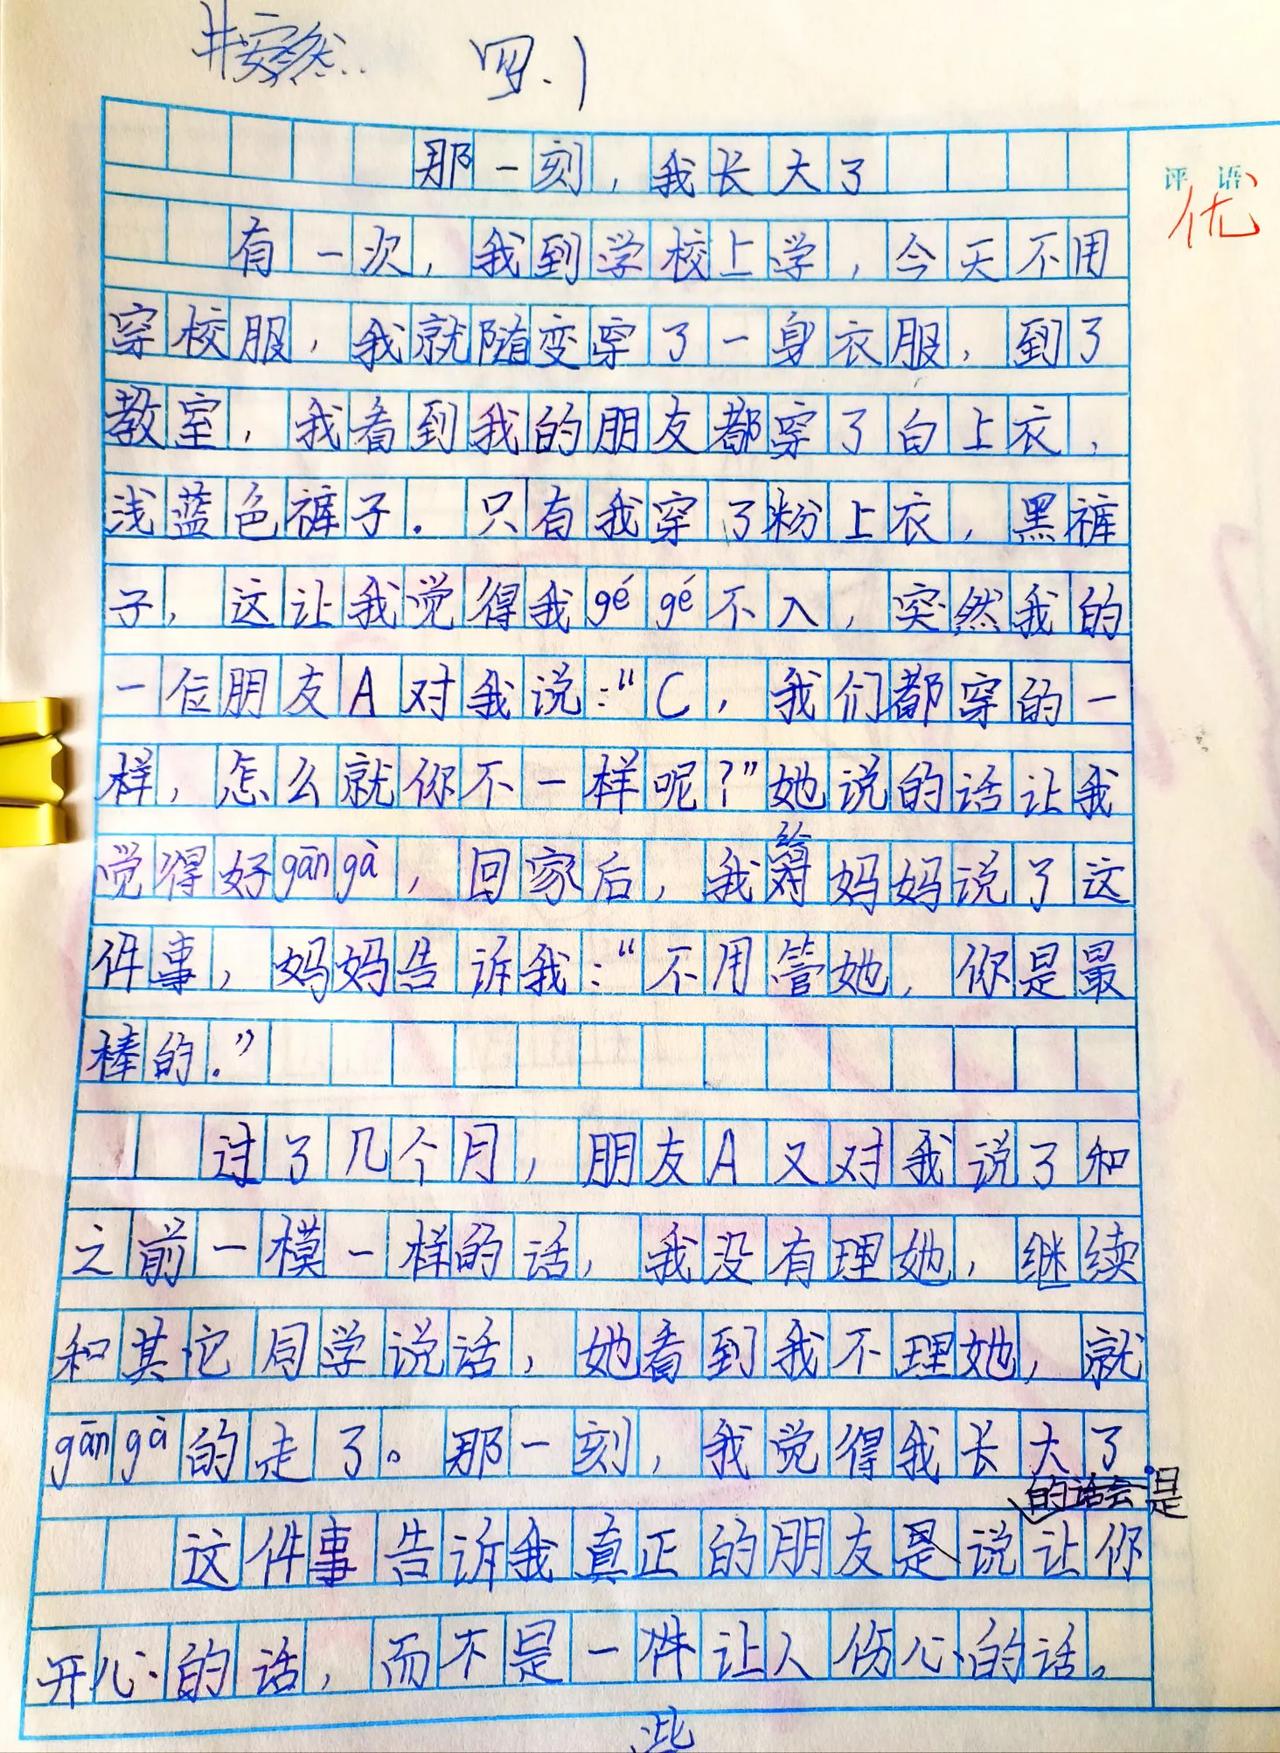 井安然 四.1
那一刻，我长大了
评 语
优
有一次，我到学校上学，今天不用
穿校服，我就随变穿了一身衣服，到了
教室，我看到我的朋友都穿了白上衣，
浅蓝色裤子．只有我穿了粉上衣，黑裤
子，这让我觉得我gé gé不入，突然我的
一位朋友A对我说：“C，我们都穿的一
样，怎么就你不一样呢？”她说的话让我
觉得好gān gà，回家后，我给妈妈说了这
件事，妈妈告诉我：“不用管她，你是最
棒的．”
过了几个月，朋友A又对我说了和
之前一模一样的话，我没有理她，继续
和其它同学说话，她看到我不理她，就
gān gà的走了。那一刻，我觉得我长大了．
的话会是
这件事告诉我真正的朋友是说让你
开心的话，而不是一件让人伤心的话。
些